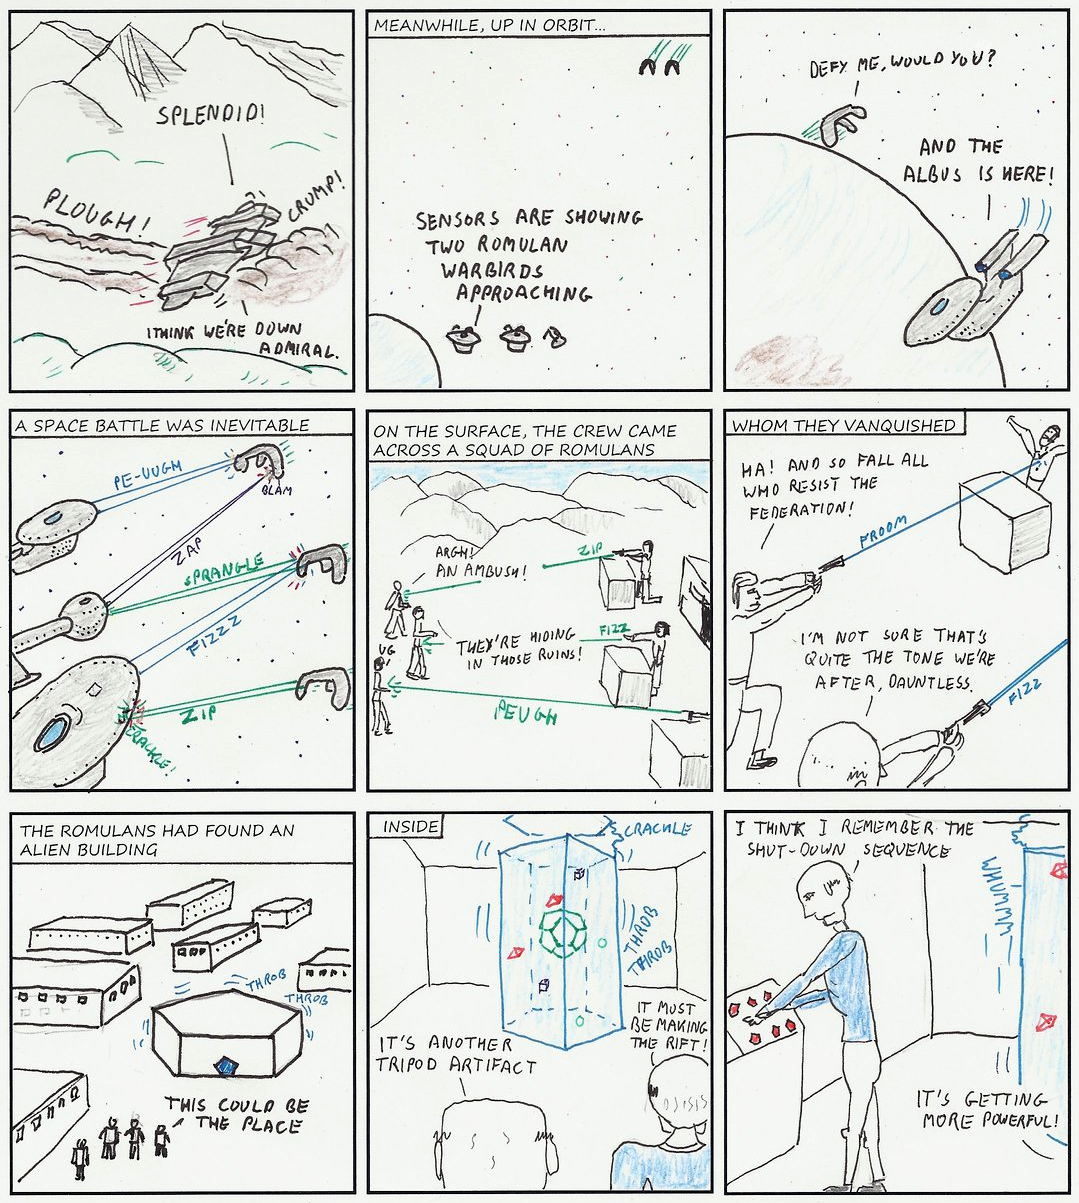 SPLENDID!
PLOUGH!
CRUMP!
I THINK WE'RE DOWN
ADMIRAL.
MEANWHILE, UP IN ORBIT...
SENSORS ARE SHOWING
TWO ROMULAN
WARBIRDS
APPROACHING
DEFY ME, WOULD YOU?
AND THE
ALBUS IS HERE!
A SPACE BATTLE WAS INEVITABLE
PE-UUGH
BLAM
ZAP
SPRANGLE
FIZZZ
ZIP
CRACKLE!
ON THE SURFACE, THE CREW CAME
ACROSS A SQUAD OF ROMULANS
ARGH!
AN AMBUSH!
ZIP
THEY'RE HIDING
IN THOSE RUINS!
FIZZ
UG
PEUGH
WHOM THEY VANQUISHED
HA! AND SO FALL ALL
WHO RESIST THE
FEDERATION!
FROOM
I'M NOT SURE THAT'S
QUITE THE TONE WE'RE
AFTER, DAUNTLESS.
FIZZ
THE ROMULANS HAD FOUND AN
ALIEN BUILDING
THROB
THROB
THIS COULD BE
THE PLACE
INSIDE
CRACKLE
THROB
THROB
IT'S ANOTHER
TRIPOD ARTIFACT
IT MUST
BE MAKING
THE RIFT!
I THINK I REMEMBER THE
SHUT-DOWN SEQUENCE
WHUMMMM
IT'S GETTING
MORE POWERFUL!